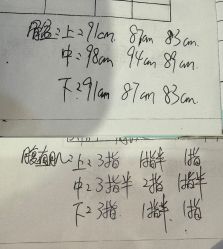 腰围:上:91cm 87cm 83cm
中:98cm 94cm 89cm
下:91cm 87cm 83cm.
腹直肌:上:3指 1指半 1指
中:3指半 2指 1指半
下:3指 1指半 1指